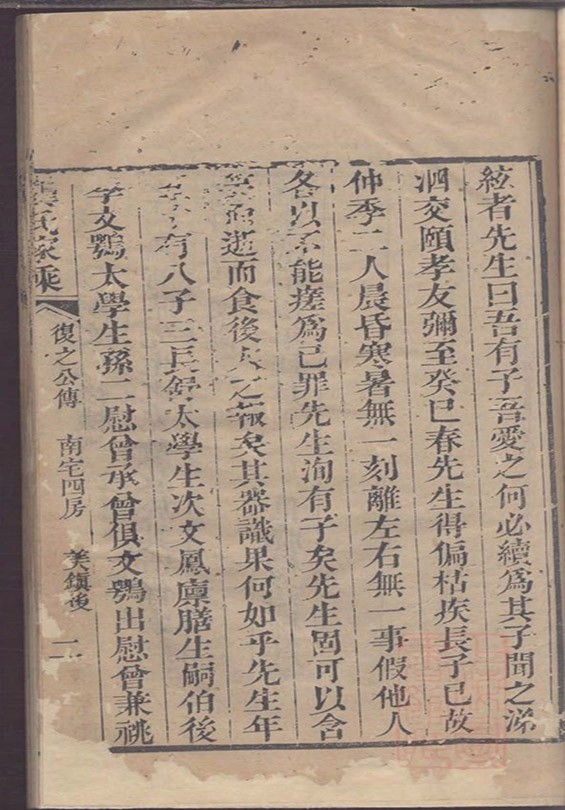 絃者先生曰吾有子吾愛之何必續爲其子聞之涕
泗交頤孝友彌至癸巳春先生得偏枯疾長子已故
仲季二人晨昏寒暑無一刻離左右無一事假他人
各以不能瘥爲己罪先生洵有子矣先生固可以含
笑而逝而食後人之報矣其器識果何如乎先生年
有八子三長太學生次文鳳廩膳生嗣伯後
字文鶚太學生孫二慰曾承曾俱文鶚出慰曾兼祧
氏家乘
復之公傳
南宅四房
美鎭後
二